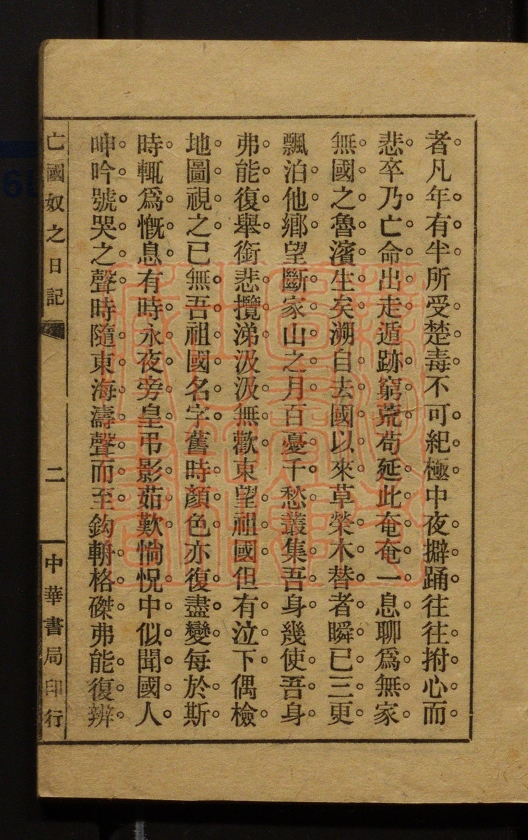 者。凡年有半。所受楚毒。不可紀極。中夜擗踊。往往拊心而
悲。卒乃亡命出走。遁跡窮荒。苟延此奄奄一息。聊爲無家
無國之魯濱生矣。溯自去國以來。草榮木替者。瞬已三更
飄泊他鄉。望斷家山之月。百憂千愁。叢集吾身。幾使吾身
弗能復舉。銜悲攬涕。汲汲無歡。東望祖國。但有泣下。偶檢
地圖視之。已無吾祖國名字。舊時顏色。亦復盡變。每於斯
時。輒爲慨息。有時永夜旁皇。弔影茹歎。惝怳中似聞國人
呻吟號哭之聲。時隨東海濤聲而至。鈎輈格磔。弗能復辨
亡國奴之日記
二
中華書局印行